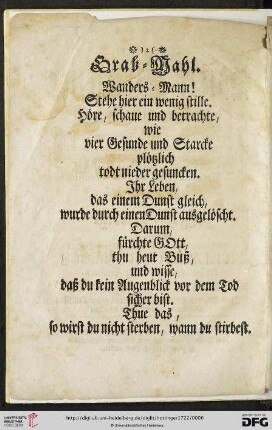 Grab-Mahl.
Wanders-Mann!
Stehe hier ein wenig stille.
Höre, schaue und betrachte,
wie
vier Gesunde und Starcke
plötzlich
todt nieder gesuncken.
Ihr Leben,
das einem Dunst gleich,
wurde durch einen Dunst ausgelöscht.
Darum,
fürchte GOtt,
thu heut Buß,
und wisse,
daß du kein Augenblick vor dem Tod
sicher bist.
Thue das,
so wirst du nicht sterben, wann du stirbest.
UNIVERSITÄTS-
BIBLIOTHEK
HEIDELBERG
http://digi.ub.uni-heidelberg.de/diglit/hottinger1722/0006
© Universitätsbibliothek Heidelberg
gefördert durch die
DFG